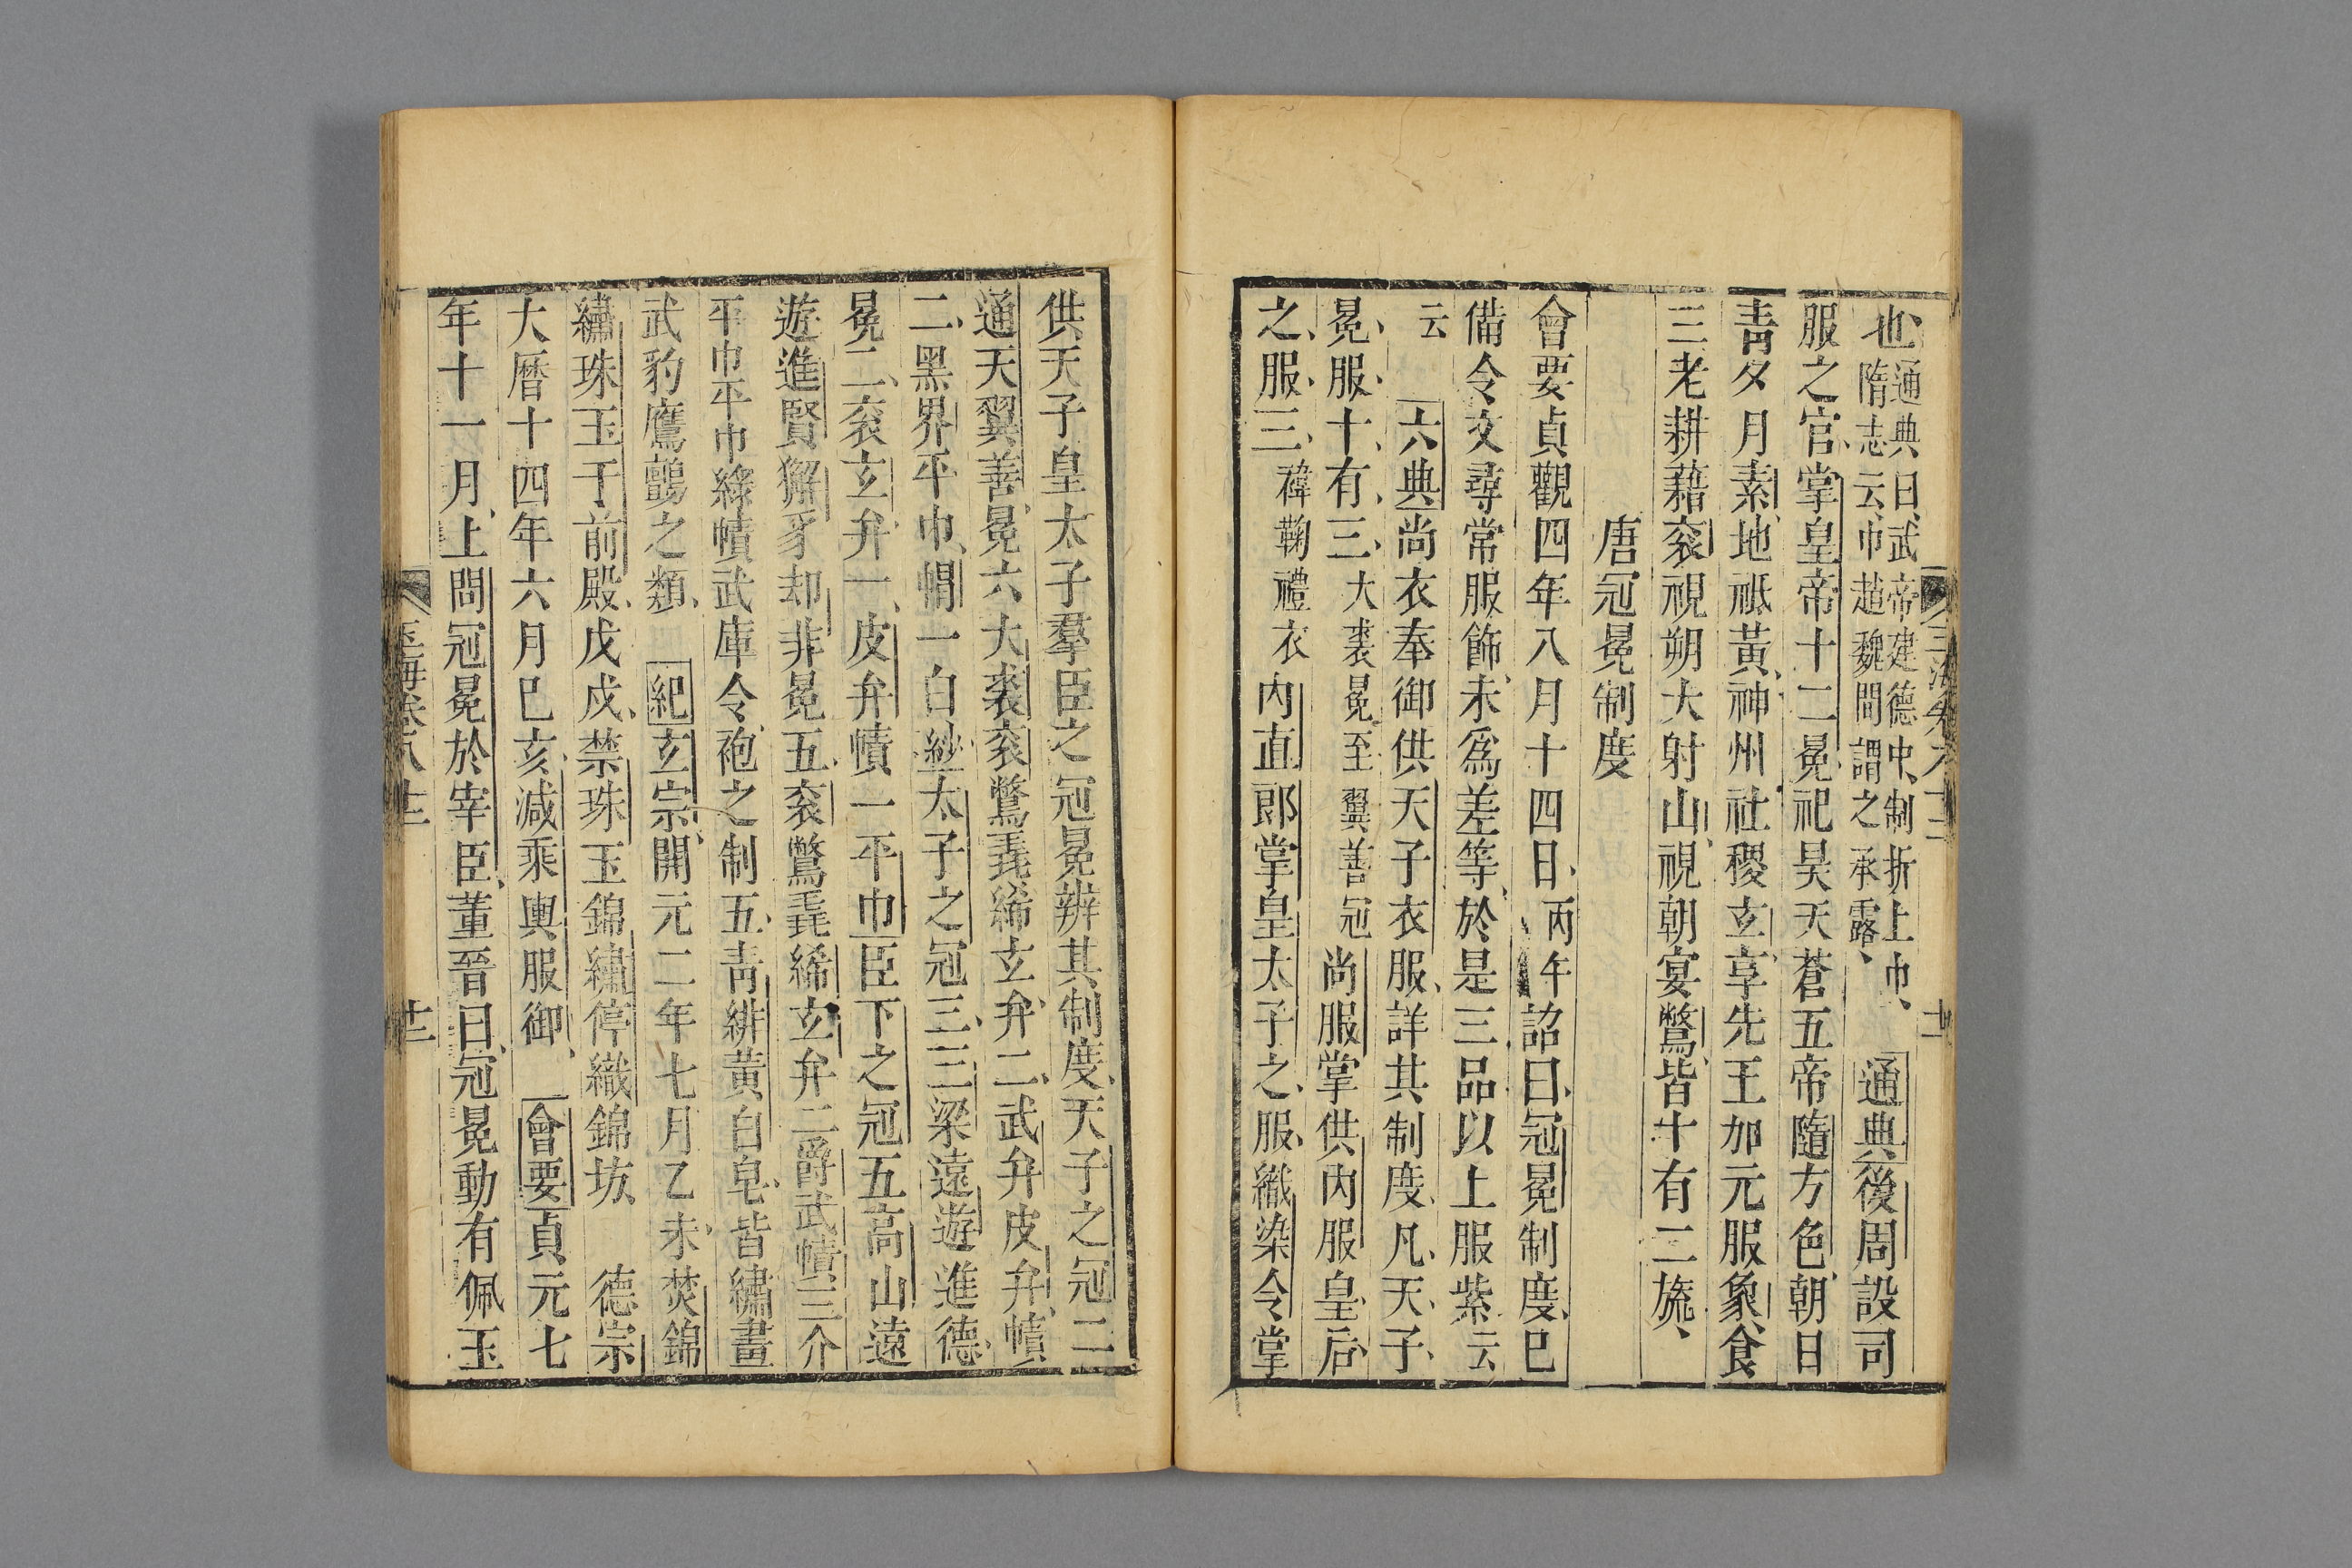 也通典曰武帝建德中制折上巾隋志云巾趙魏間謂之承露通典後周設司
服之官掌皇帝十二冕祀昊天蒼五帝隨方色朝日
青夕月素地祗黃神州社稷玄享先王加元服象食
三老耕藉袞視朔大射山視朝宴鷩皆十有二旒
唐冠冕制度
會要貞觀四年八月十四日丙午詔曰冠冕制度已
備令文尋常服飾未爲差等於是三品以上服紫云
云六典尚衣奉御供天子衣服詳其制度凡天子
冕服十有三大裘冕至翼善冠尚服掌供內服皇后
之服三褘鞠禮衣內直郎掌皇太子之服織染令掌
供天子皇太子羣臣之冠冕辨其制度天子之冠二
通天翼善冕六大裘袞鷩毳絺玄弁二武弁皮弁幘
二黑界平巾㡌一白紗太子之冠三三梁遠遊進德
冕二袞玄弁一皮弁幘一平巾臣下之冠五高山遠
遊進賢獬豸却非冕五袞鷩毳絺玄弁二爵武幘三介
平巾平巾綠幘武庫令袍之制五青緋黃白皂皆繡畫
武豹鷹鸇之類紀玄宗開元二年七月乙未焚錦
繡珠玉于前殿戊戌禁珠玉錦繡停織錦坊德宗
大曆十四年六月己亥減乘輿服御會要貞元七
年十一月上問冠冕於宰臣董晉曰冠冕動有佩玉
玉海卷八十二